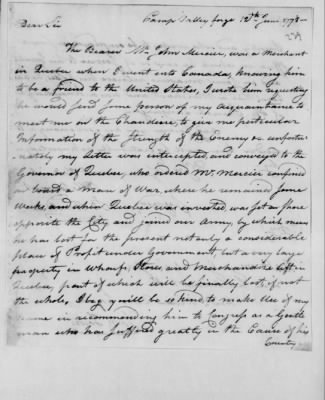 Camp Valley forge 12th June 1778
Dear Sir
The Bearer Mr John Mercier, was a Merchant
in Quebec when I went into Canada, knowing him
to be a friend to the United States, I wrote him requesting
he would send some person of my Acquaintance to
meet me on the Chaudiere, to give me particular
Information of the Strength of the Enemy &c unfortu-
nately my Letter was intercepted, and conveyed to the
Governor of Quebec, who ordered Mr. Mercier confined
on board a Man of War, where he remained some
Weeks, and when Quebec was invested was set on shore
opposite the City and joined our Army, by which means
he has lost for the present not only a considerable
place of Profit under Government, but a very large
property in Wharfs, Stores, and Merchandise left in
Quebec, part of which will be finally lost, if not
the whole, I beg you will be so kind, to make Use of my
Name in recommending him to Congress as a Gentle
man who has suffered greatly in the Cause of his
Country